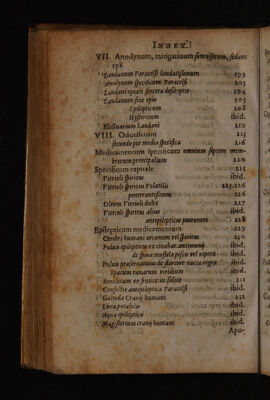 INDEX.
VII. Anodynum, mitigatiuum somniferum, sedans
198
Laudanum Paracelsi laudatissimum 199
Anodynum specificum Paracelsi 203
Laudani opiati sincera descriptio 204
Laudanum sine opio 205
Epilepticum 208
Hystericum ibid.
Electuarium Laudani 210
VIII. Odoriferum 215
secundo per media specifica 216
Medicamentum specificum omnium septem mem-
brorum principalium 220
Specificum capitale 215
Vitrioli spiritus ibid.
Vitrioli spiritus Volatilis 225.226
penetrantissimus 226
Oleum Vitrioli dulce 227
Vitrioli spiritus alius ibid.
antiepilepticus puerorum 228
Epilepticum medicamentum 229
Cerebri humani arcanum vel spiritus 230
Puluis epilepticus ex cinabar. antimonij ibid.
de spina mustela piscis vel vipera ibid.
Puluis praeseruatiuus de stercore Pauae regia ibid.
Epatum ranarum viridium ibid.
Amuletum ex frutice in salice 231
Confectio antepileptica Paracelsi ibid.
Galreda Cranij humani 232
Luna potabilis ibid.
Aqua epileptica ibid.
Magisterium cranij humani ibid.
Apo-